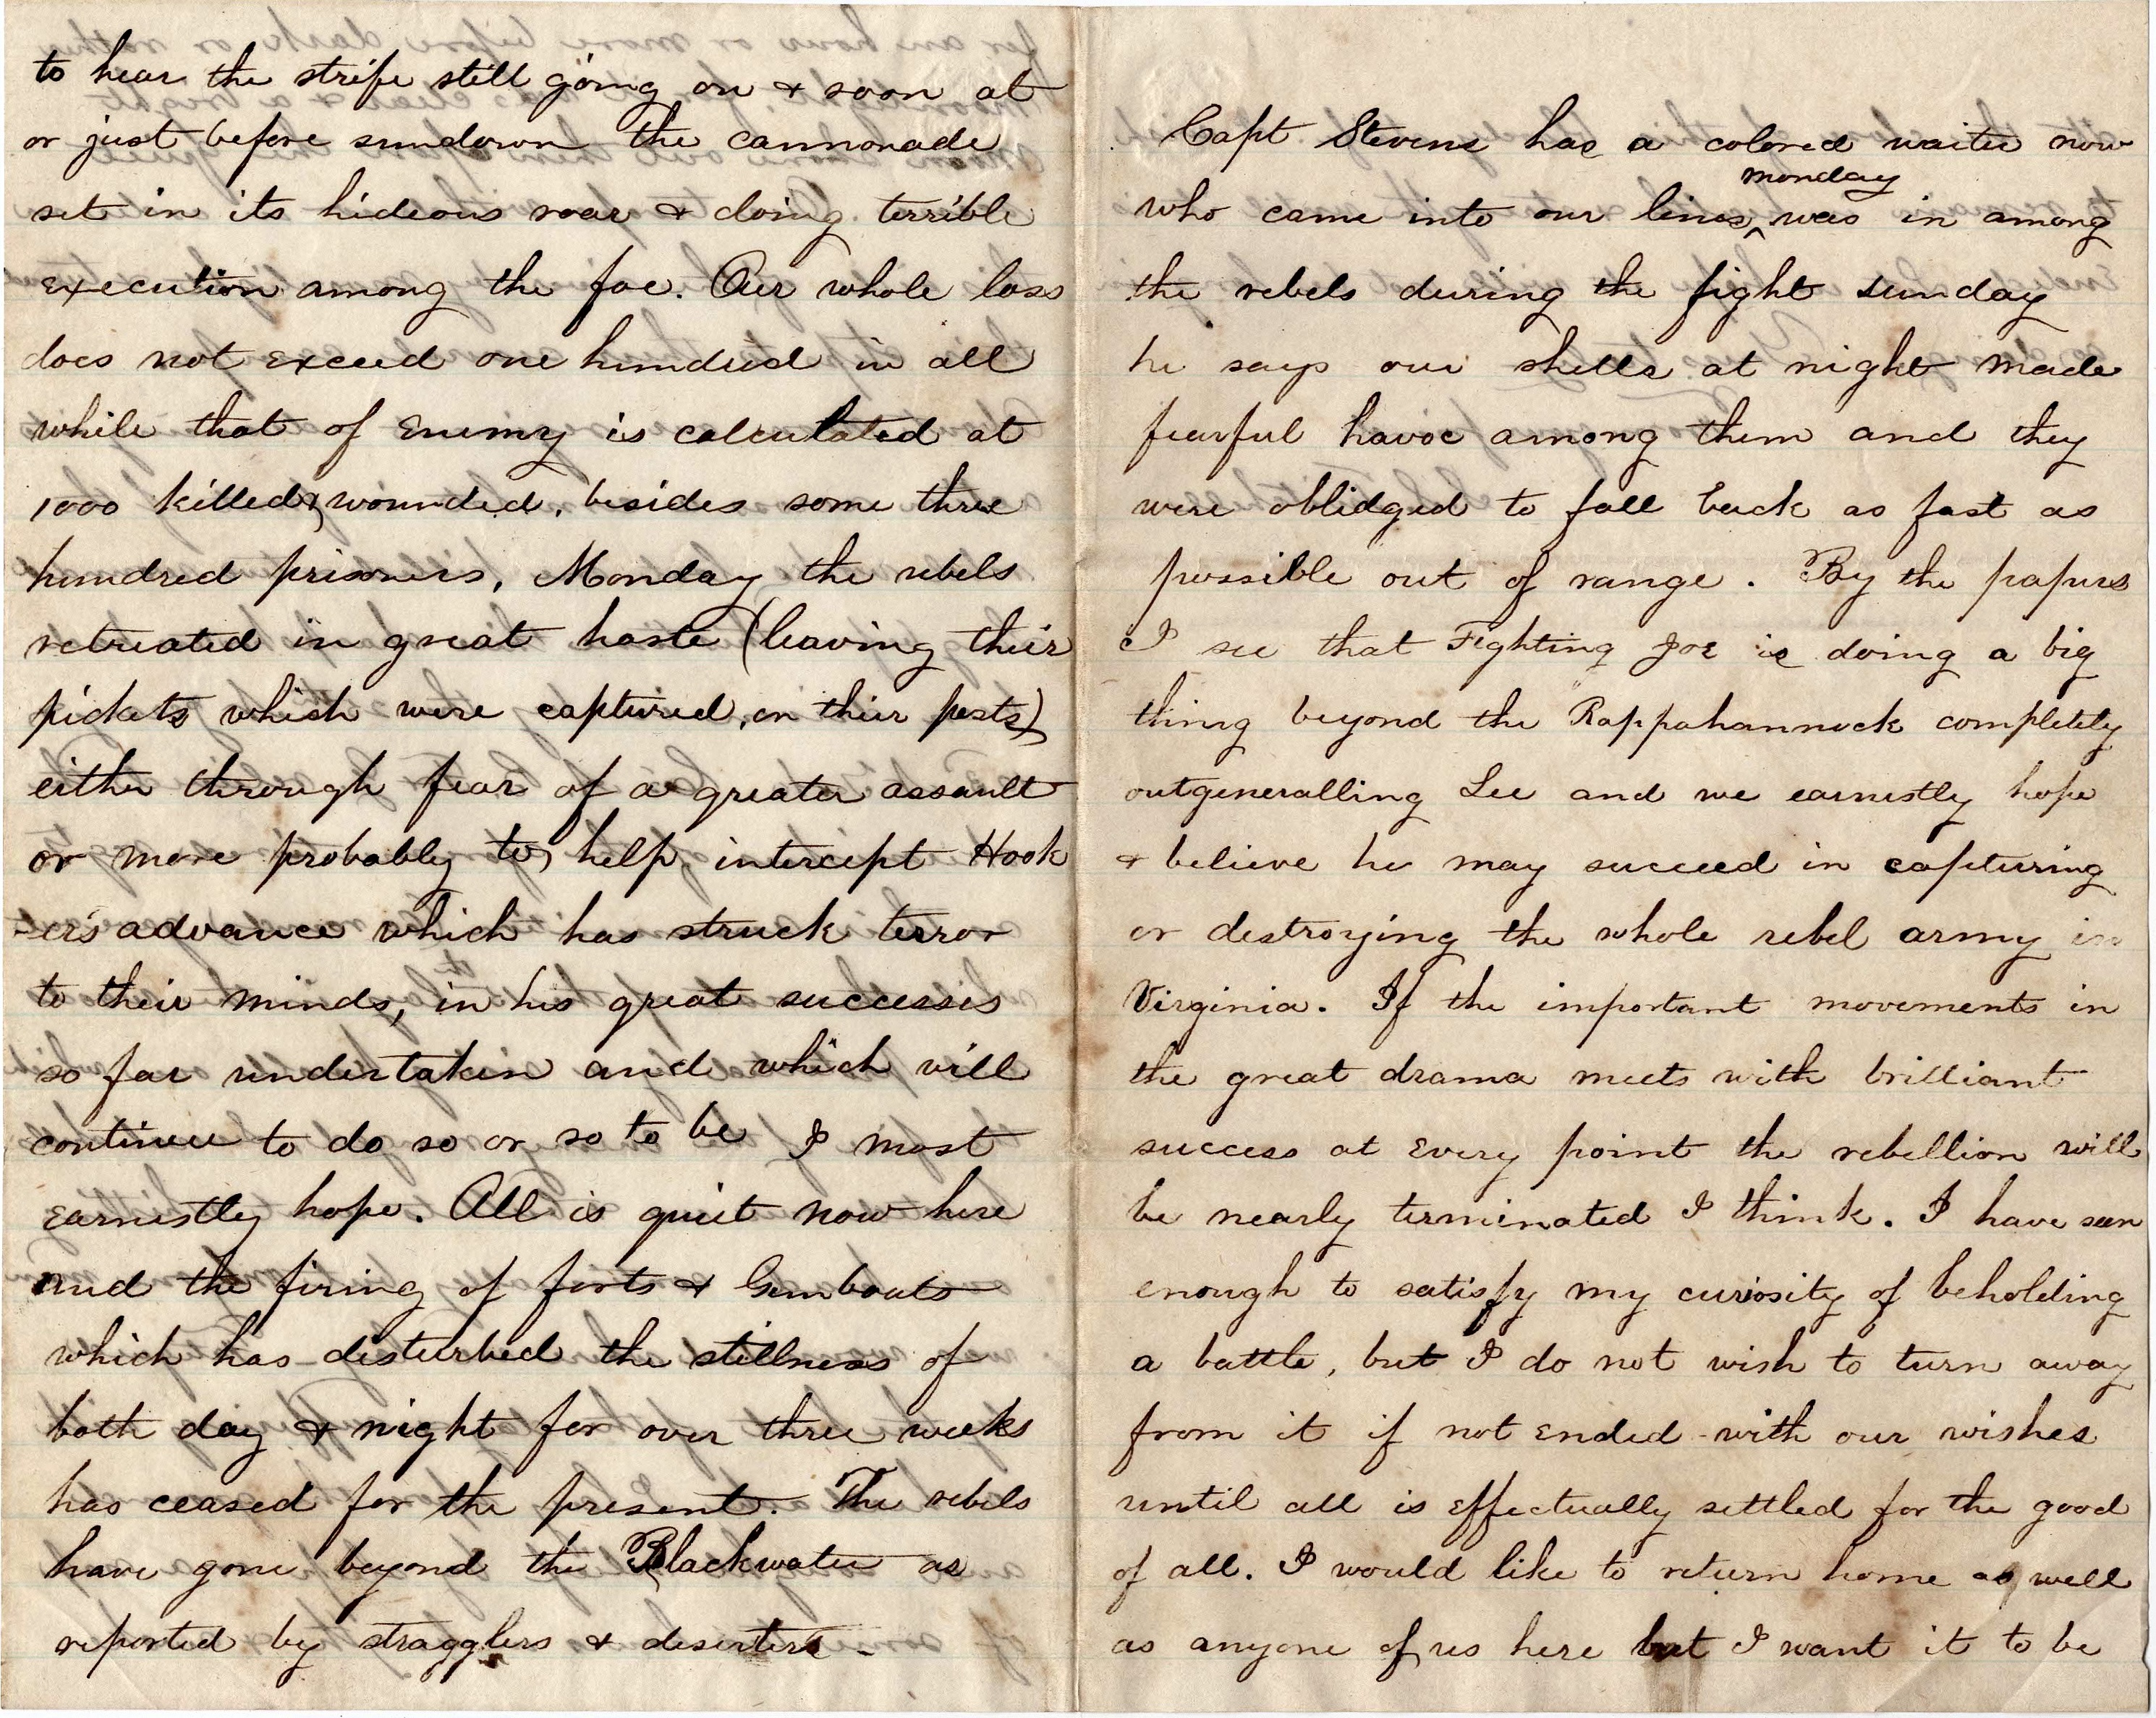 to hear the strife still going on & soon at
or just before sundown the cannonade
set in its hideous roar & doing terrible
execution among the foe. Our whole loss
does not exceed one hundred in all
while that of Enemy is calculated at
1000 killed & wounded, besides some three
hundred prisoners, Monday the rebels
retreated in great haste (leaving their
pickets which were captured, on their posts)
either through fear of a greater assault
or more probably to help intercept Hook
-er's advance which has struck terror
to their minds, in his great successes
so far undertaken and which will
continue to do so or so to be I most
earnestly hope. All is quiet now here
and the firing of forts & Gunboats
which has disturbed the stillness of
both day & night for over three weeks
has ceased for the present. The rebels
have gone beyond the Blackwater as
reported by stragglers & deserters -
Capt Stevens has a colored waiter now
monday
who came into our lines ^ was in among
the rebels during the fight sunday
he says our shells at night made
fearful havoc among them and they
were oblidged to fall back as fast as
possible out of range. By the papers
I see that Fighting Joe is doing a big
thing beyond the Rappahannock completely
outgeneralling Lee and we earnestly hope
& believe he may succeed in capturing
or destroying the whole rebel army in
Virginia. If the important movements in
the great drama meets with brilliant
success at every point the rebellion will
be nearly terminated I think. I have seen
enough to satisfy my curiosity of beholding
a battle, but I do not wish to turn away
from it if not ended with our wishes
until all is effectually settled for the good
of all. I would like to return home as well
as anyone of us here but I want it to be